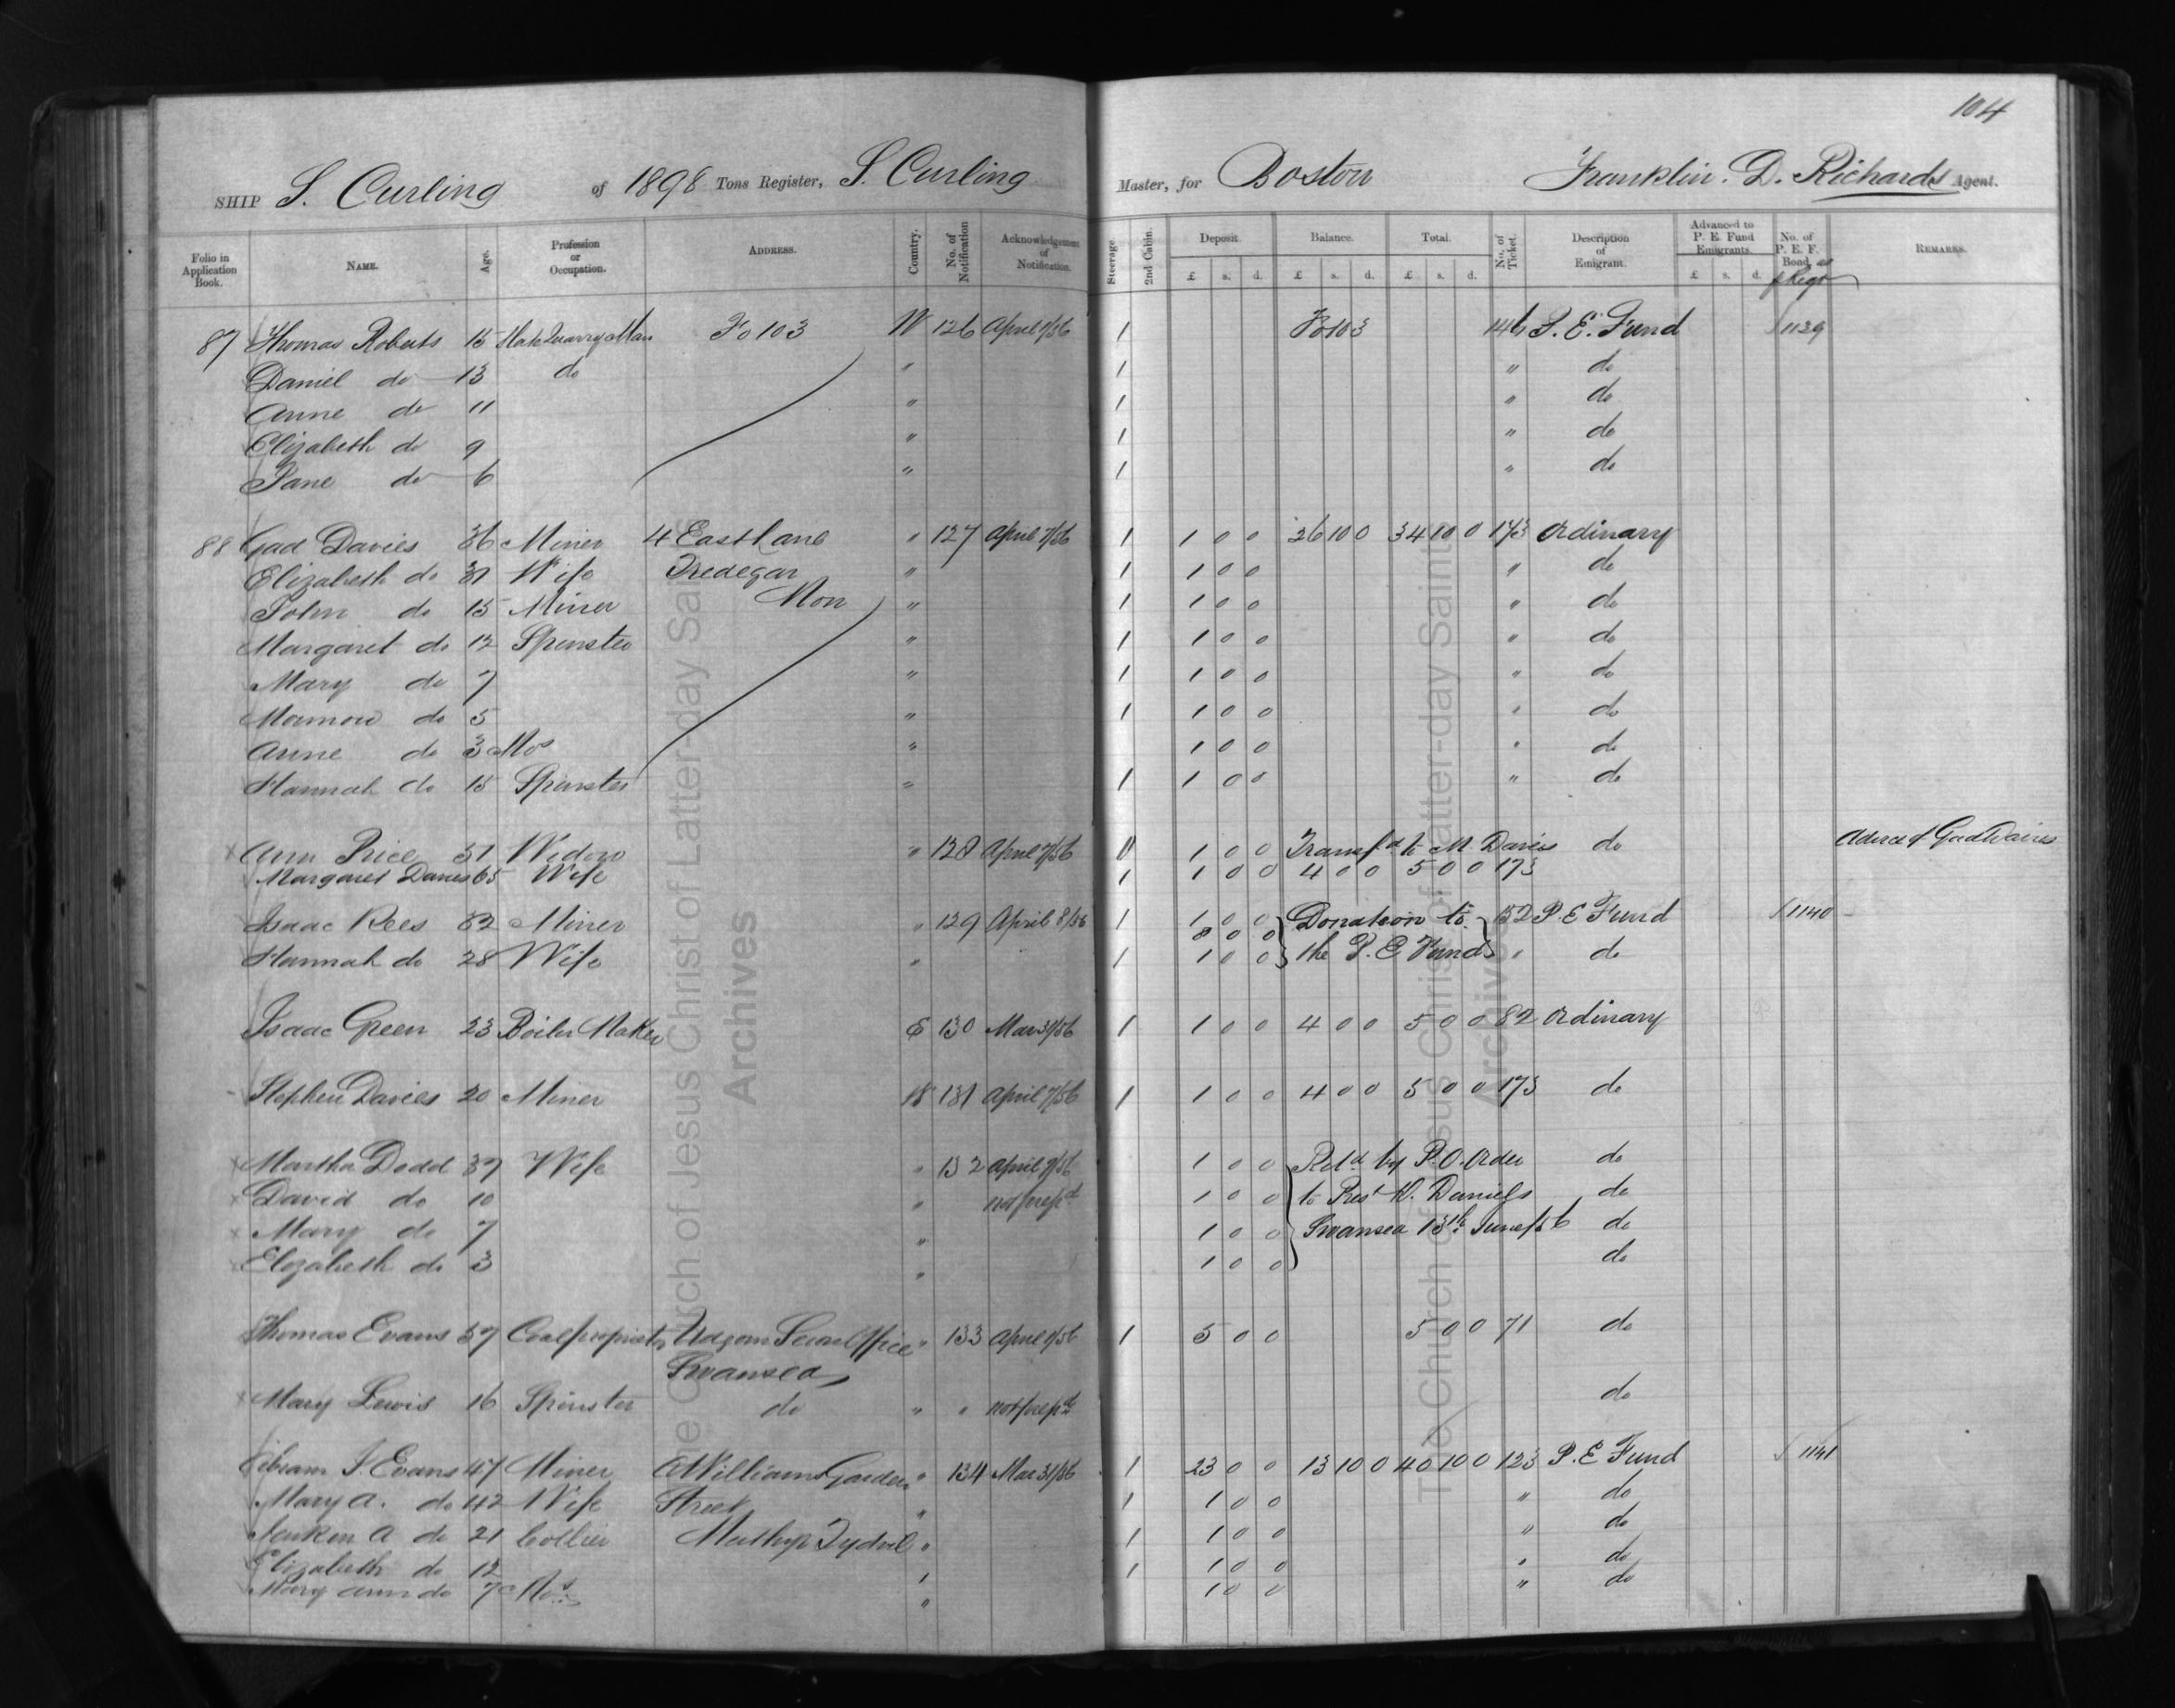 104
SHIP S. Curling of 1898 Tons Register, S. Curling Master, for Boston Franklin. D. Richards Agent.
Folio in Application Book. NAME. Age. Profession or Occupation. ADDRESS. Country. No. of Notification Acknowledgement of Notification. Steerage 2nd Cabin. Deposit. £ s. d. Balance. £ s. d. Total. £ s. d. No. of Ticket. Description of Emigrant. Advanced to P. E. Fund Emigrants. £ s. d. No. of P. E. F. Bond, REMARKS.
87 Thomas Roberts 15 Fo 103 W 126 April 7/56 1 Fo 103 146 P. E. Fund 1139
Daniel do 13 do " 1 " do
Anne do 11 " 1 " do
Elizabeth do 9 " 1 " do
Jane do 6 " 1 " do
88 Gad Davies 36 Miner 4 East Lane " 127 April 7/56 1 1 0 0 26 10 0 34 10 0 173 Ordinary
Elizabeth do Wife Tredegar " 1 1 0 0 " do
John do 15 Miner Mon " 1 1 0 0 " do
Margaret do 12 Spinster " 1 1 0 0 " do
Mary do 7 " 1 1 0 0 " do
do 5 " 1 1 0 0 " do
Anne do 3 Mos " 1 0 0 " do
Hannah do 15 Spinster " 1 1 0 0 " do
Ann Price 51 Widow " 128 April 7/56 1 0 0 Transfd to M Davies do Gad Davies
Margaret Davies 65 Wife 1 1 0 0 4 0 0 5 0 0 173
Isaac Rees 32 Miner " 129 April 8/56 1 1 0 0 Donation to 152 P. E Fund 1140
8 0 0
Hannah do 28 Wife " 1 1 0 0 the P. E Fund " do
Isaac Green 23 Boiler Maker E 130 Mar 31/56 1 1 0 0 4 0 0 5 0 0 82 Ordinary
Stephen Davies 20 Miner W 131 April 7/56 1 1 0 0 4 0 0 5 0 0 173 do
Martha Dodd 37 Wife " 132 April 9/56 1 0 0 Retd by P. O. Order do
David do 10 " not prepd 1 0 0 to Prest D. Daniels do
Mary do 7 " 1 0 0 Swansea 13th June/56 do
Elizabeth do 3 " 1 0 0 do
Thomas Evans 57 Coal proprietor Udgorn Seion Office " 133 April 9/56 1 5 0 0 5 0 0 71 do
Swansea
Mary Lewis 16 Spinster do " " not prepd do
Abram J. Evans 47 Miner Williams Garden " 134 Mar 31/56 1 23 0 0 13 10 0 40 10 0 123 P. E Fund 1141
Mary A. do 42 Wife Street " 1 1 0 0 " do
Jenkin A do 21 Collier Merthyr Tydvil " 1 1 0 0 " do
Elizabeth do 12 " 1 1 0 0 " do
Mary Ann do 7 Mos " 1 0 0 " do
The Church of Jesus Christ of Latter-day Saints
Archives
The Church of Jesus Christ of Latter-day Saints
Archives